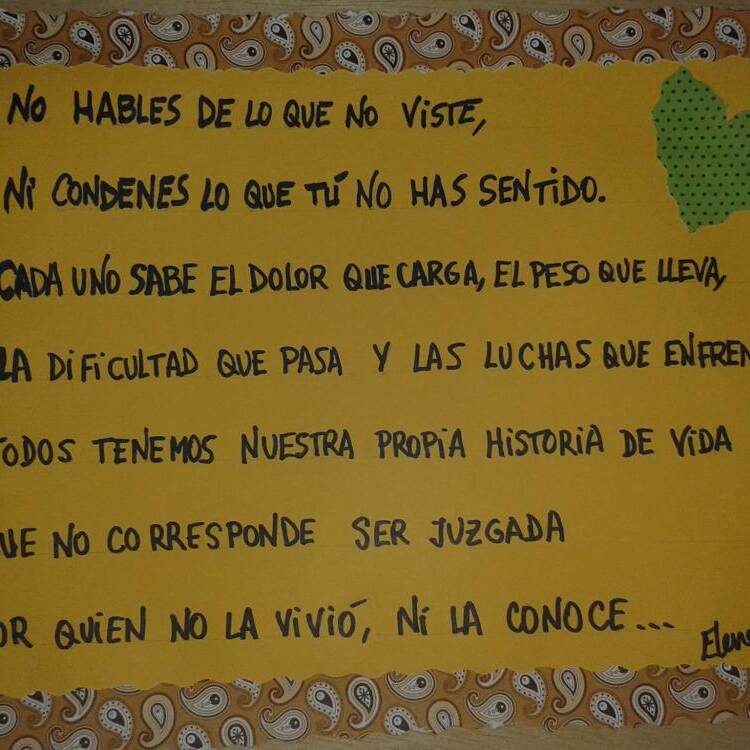 NO HABLES DE LO QUE NO VISTE,
NI CONDENES LO QUE TÚ NO HAS SENTIDO.
CADA UNO SABE EL DOLOR QUE CARGA, EL PESO QUE LLEVA,
LA DIFICULTAD QUE PASA Y LAS LUCHAS QUE ENFREN
TODOS TENEMOS NUESTRA PROPIA HISTORIA DE VIDA
UE NO CORRESPONDE SER JUZGADA
OR QUIEN NO LA VIVIÓ, NI LA CONOCE...
Elen